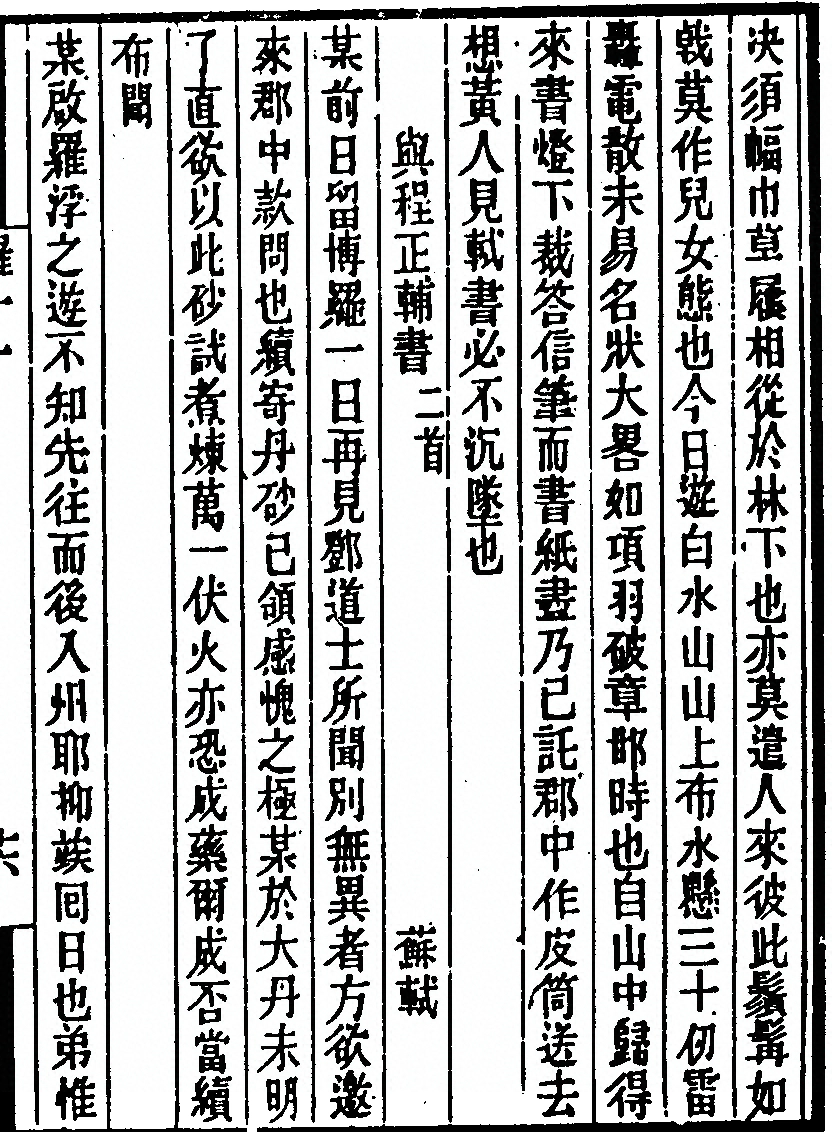 决須幅巾草屨相從於林下也亦莫遣人來彼此鬚髯如
戟莫作兒女態也今日遊白水山山上布水懸三十仞雷
轟電散未易名狀大畧如項羽破章邯時也自山中歸得
來書燈下裁答信筆而書紙盡乃已託郡中作皮筒送去
想黃人見軾書必不沉墜也
與程正輔書 二首 蘇軾
某前日留博羅一日再見鄧道士所聞別無異者方欲邀
來郡中款問也續寄丹砂已領感愧之極某於大丹未明
了直欲以此砂試煮煉萬一伏火亦恐成藥爾成否當續
布聞
某啟羅浮之遊不知先往而後入州耶抑竢回日也弟惟